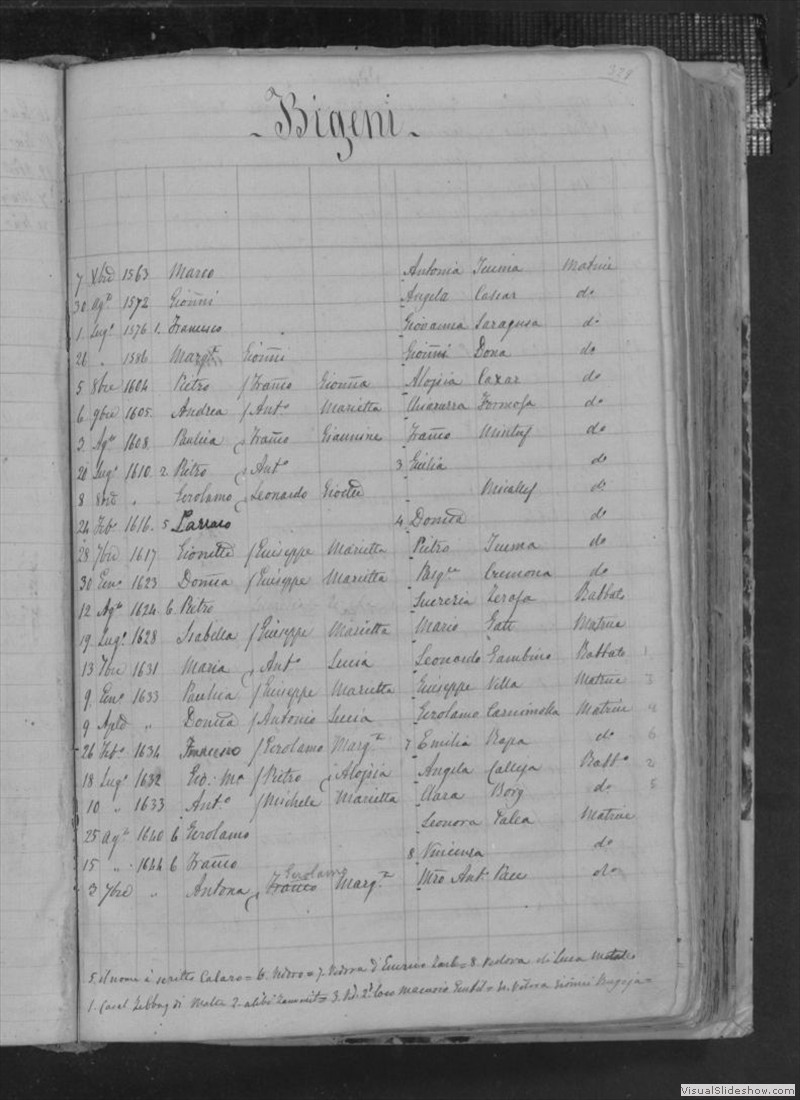 329
- Bigeni -
7 Xbre 1563 Marco Antonia Matrice
30 Ag.to 1572 Gionni Angela Cassar do
1 Lug.o 1576 1. Francesco Giovanna Saragusa do
26 " 1586 Marg.ta Gionni Gionni Dona do
5 8bre 1604 Pietro / Franco Gionna Aloysia Caxar do
6 9bre 1605 Andrea / Ant.o Marietta Formosa do
3 Ag.to 1608 Paulica / Franco Giannine Franco do
20 Lug.o 1610 2 Pietro / Ant.o 3 Giulia do
8 8bre " Gerolamo / Leonardo Micallef do
24 Feb.o 1616 5 4 Donica do
28 7bre 1617 / Giuseppe Marietta Pietro do
30 Gen.o 1623 / Giuseppe Marietta Cremona do
12 Ag.to 1624 6 Pietro Lucrezia Zerafa Rabbato
19 Lug.o 1628 Isabella / Giuseppe Marietta Mario Gatt Matrice
13 7bre 1631 Maria / Ant.o Lucia Leonardo Gambino Rabbato 1
9 Gen.o 1633 Paulica / Giuseppe Marietta Giuseppe Villa Matrice 3
9 Aple " Donica / Antonio Lucia Gerolamo Matrice 4
26 Feb.o 1634 Francesco / Gerolamo Marg.ta 7 Emilia Rapa do 6
18 Lug.o 1632 Gio: Ma / Pietro Aloysia Angela Calleja Rabb.o 2
10 " 1633 Ant.o / Michele Marietta Clara Borg do 5
25 Ag.to 1640 6 Gerolamo Leonora Galea Matrice
15 " 1644 6 Franco 8 Vincenza do
Gerolamo
3 7bre " Antona / Franco Marg.ta Mro Ant.o Pace do
5. il nome è scritto Cataro = 6. Vedovo = 7. Vedova d'Enrico = 8. Vedova di Luca
1. Casal Zebbug di Malta 2. alibi Zammit = 3. = 4. Vedova Gionni Bugeja =
VisualSlideshow.com